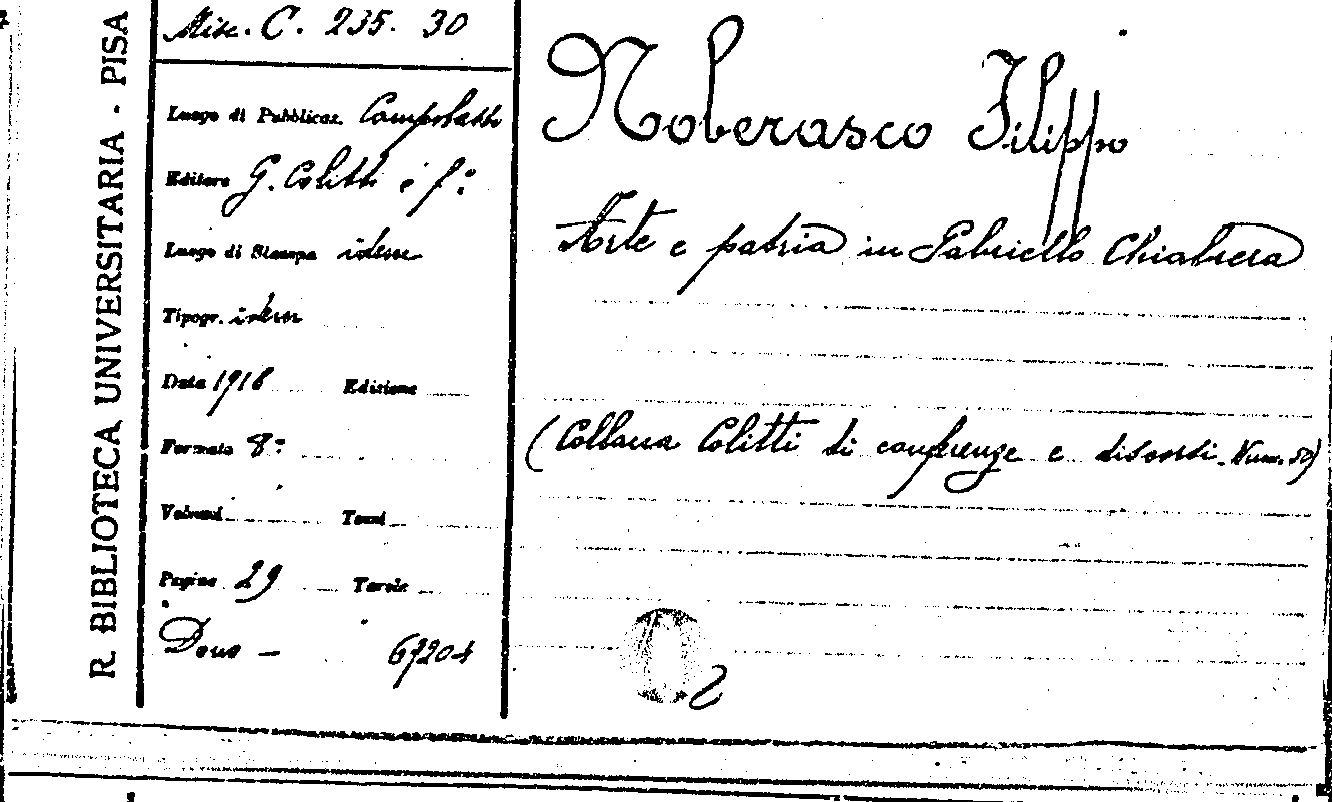 R. BIBLIOTECA UNIVERSITARIA - PISA
Misc. C. 235. 30
Luogo di Pubblicaz. Campobasso
Editore G. Colitti e f:°
Luogo di Stampa idem
Tipogr. idem
Data 1918 Edizione
Formato 8:°
Volumi Tomi
Pagine 29 Tavole
Dono - 67204
Noberasco Filippo
Arte e patria in Gabriello Chiabrera
(Collana Colitti di conferenze e discorsi. Num. 50)